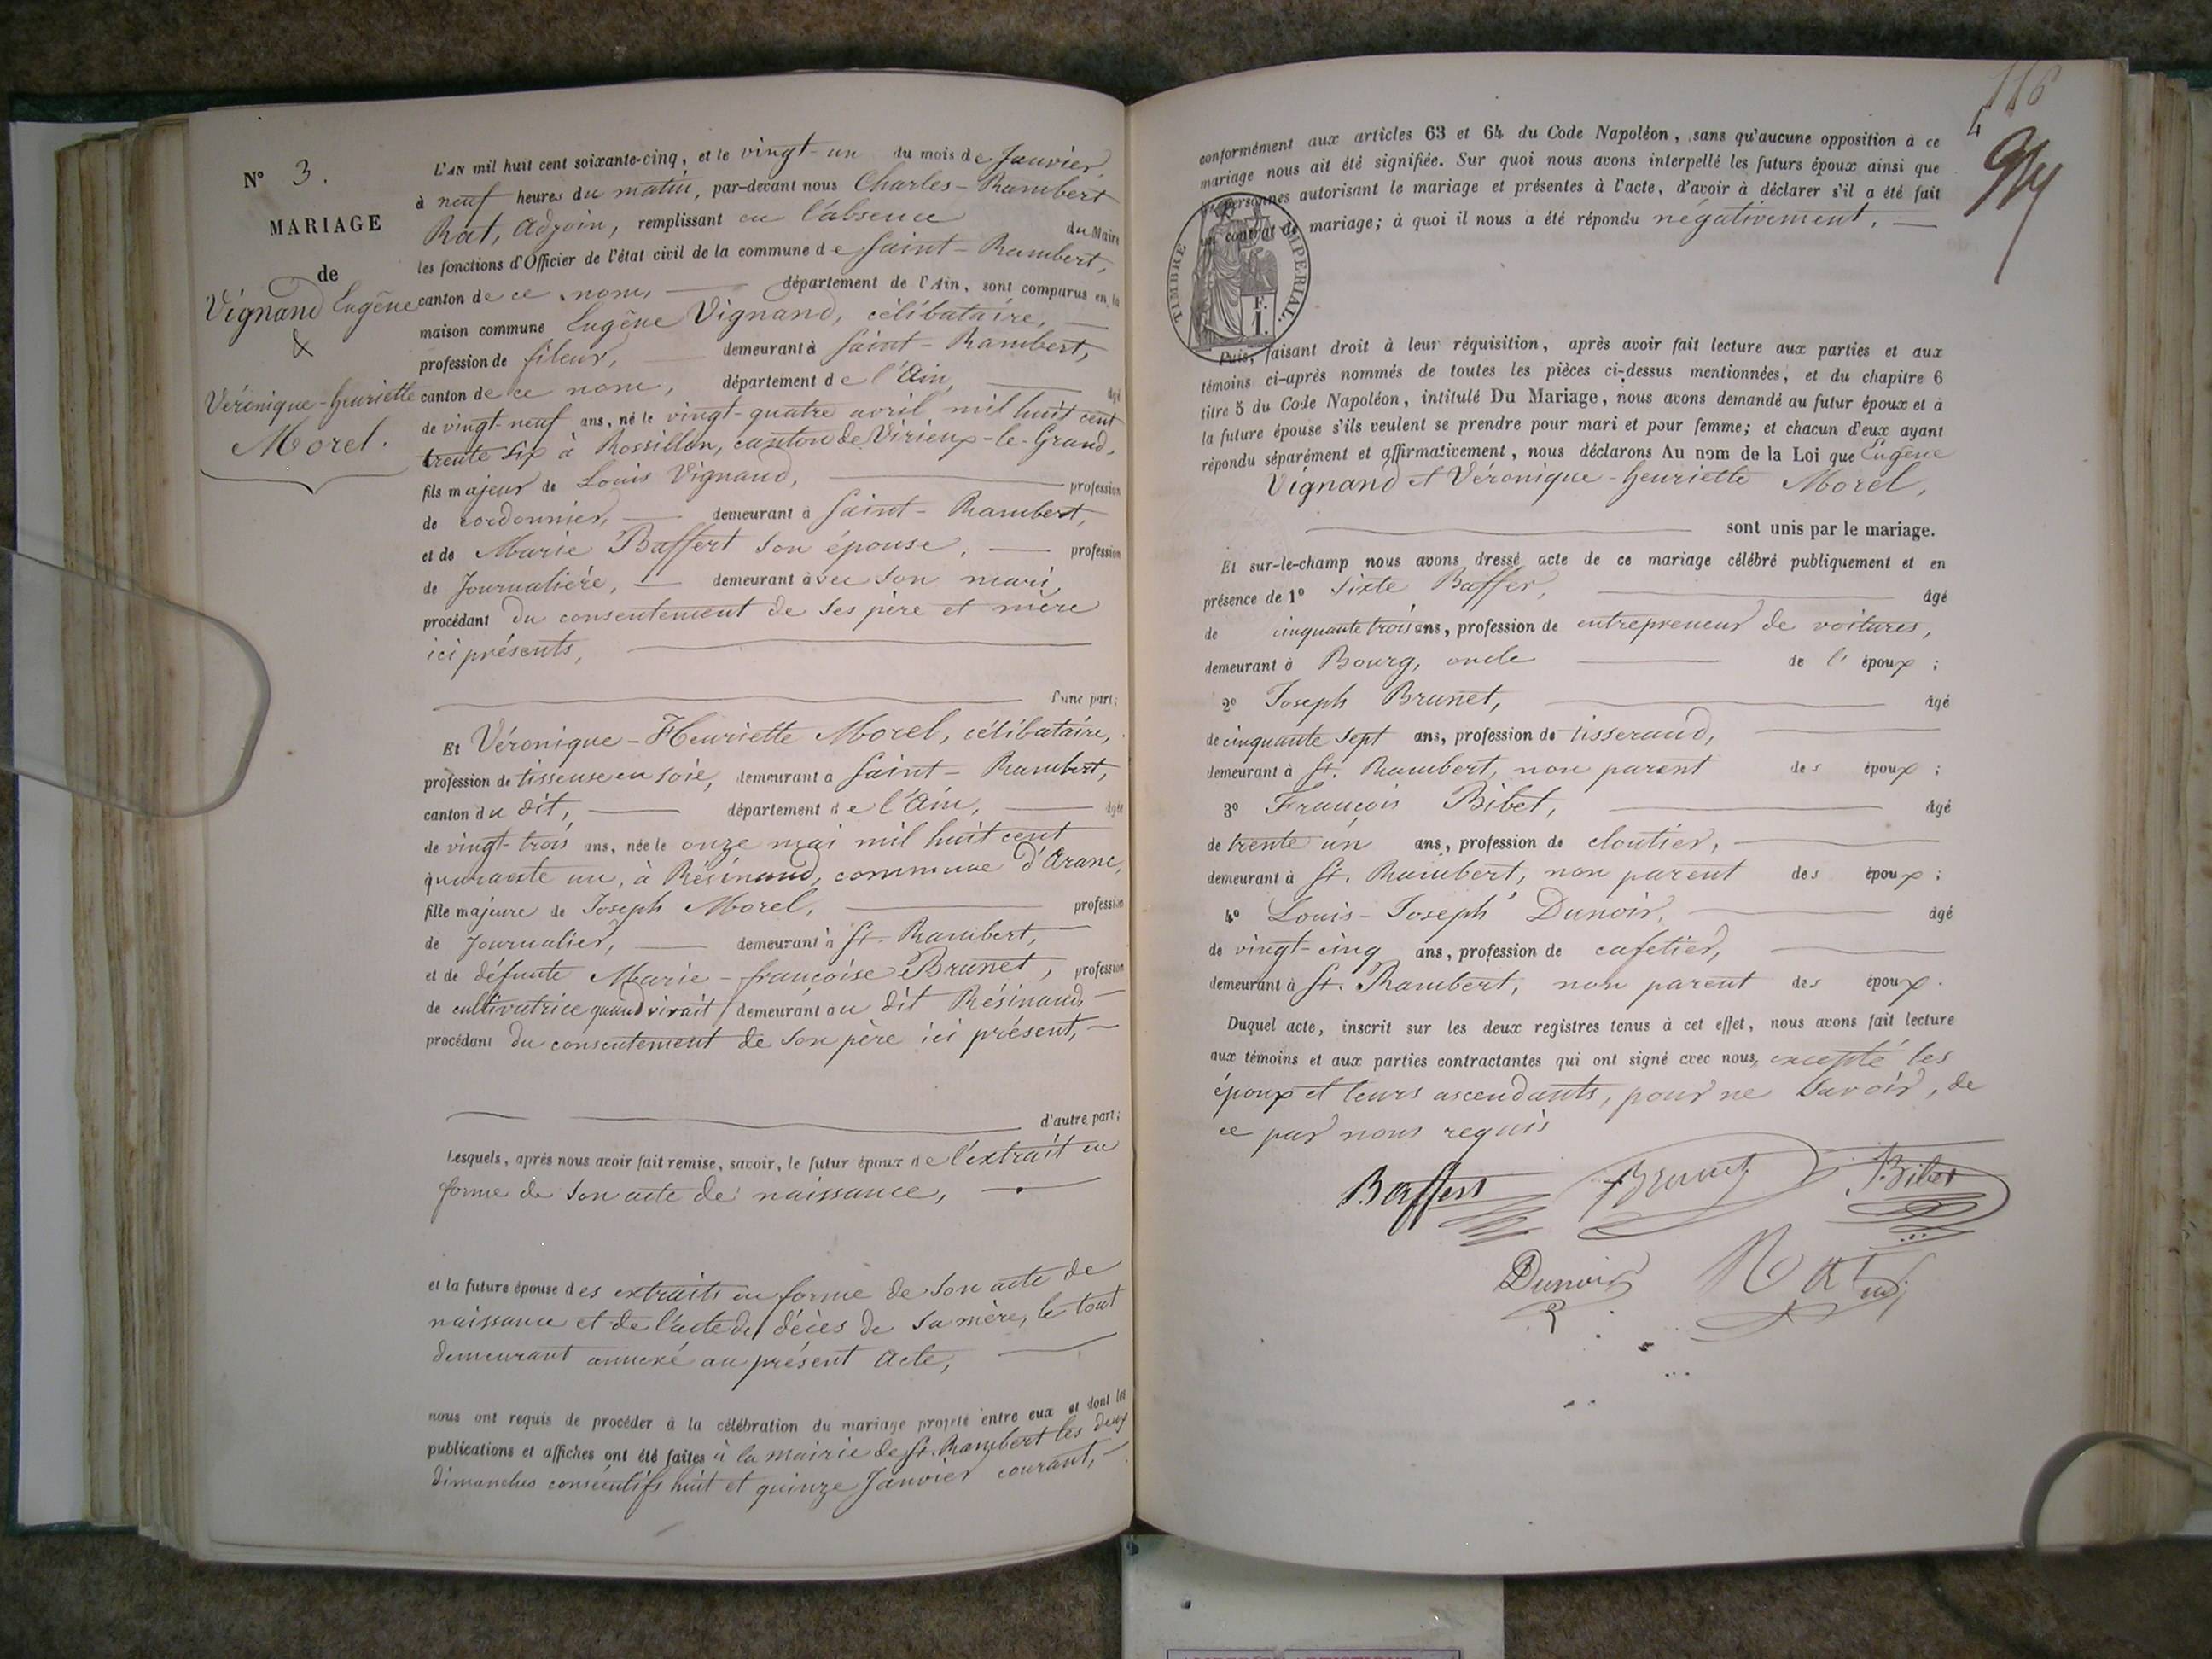 N° 3.
MARIAGE
de
Vignand Eugène
&
Véronique-henriette
Morel.
L'AN mil huit cent soixante-cinq, et le vingt-un du mois de Janvier,
à neuf heures du matin, par-devant nous Charles-Rambert
Rat, Adjoin, remplissant en l'absence du Maire
les fonctions d'Officier de l'état civil de la commune de Saint-Rambert,
canton de ce nom, département de l'Ain, sont comparus en la
maison commune Eugène Vignand, célibataire,
profession de fileur, demeurant à Saint-Rambert,
canton de ce nom, département de l'Ain, âgé
de vingt-neuf ans, né le vingt-quatre avril mil huit cent
trente six à Rossillon, canton de Virieux-le-Grand,
fils majeur de Louis Vignand, profession
de cordonnier, demeurant à Saint-Rambert,
et de Marie Baffert son épouse, profession
de Journalière, demeurant avec son mari,
procédant du consentement de ses père et mère
ici présents,
d'une part;
Et Véronique-Henriette Morel, célibataire,
profession de tisseuse en soie, demeurant à Saint-Rambert,
canton du dit, département de l'Ain, âgée
de vingt-trois ans, née le onze mai mil huit cent
quarante un, à Résinand, commune d'Arane,
fille majeure de Joseph Morel, profession
de Journalier, demeurant à St. Rambert,
et de défunte Marie-françoise Brunet, profession
de cultivatrice quand vivait demeurant au dit Résinand,
procédant du consentement de son père ici présent,
d'autre part;
Lesquels, après nous avoir fait remise, savoir, le futur époux de l'extrait en
forme de son acte de naissance,
et la future épouse des extraits en forme de son acte de
naissance et de l'acte de décès de sa mère, le tout
demeurant annexé au présent Acte,
nous ont requis de procéder à la célébration du mariage projeté entre eux et dont les
publications et affiches ont été faites à la mairie de St. Rambert les deux
dimanches consécutifs huit et quinze Janvier courant,
116
4
conformément aux articles 63 et 64 du Code Napoléon, sans qu'aucune opposition à ce
mariage nous ait été signifiée. Sur quoi nous avons interpellé les futurs époux ainsi que
les personnes autorisant le mariage et présentes à l'acte, d'avoir à déclarer s'il a été fait
un contrat de mariage; à quoi il nous a été répondu négativement.
TIMBRE IMPERIAL.
F.
1.
Puis, faisant droit à leur réquisition, après avoir fait lecture aux parties et aux
témoins ci-après nommés de toutes les pièces ci-dessus mentionnées, et du chapitre 6
titre 5 du Code Napoléon, intitulé Du Mariage, nous avons demandé au futur époux et à
la future épouse s'ils veulent se prendre pour mari et pour femme; et chacun d'eux ayant
répondu séparément et affirmativement, nous déclarons Au nom de la Loi que Eugène
Vignand et Véronique-henriette Morel,
sont unis par le mariage.
Et sur-le-champ nous avons dressé acte de ce mariage célébré publiquement et en
présence de 1° Sixte Baffer, âgé
de cinquante trois ans, profession de entrepreneur de voitures,
demeurant à Bourg, oncle de l'époux;
2° Joseph Brunet, âgé
de cinquante sept ans, profession de tisserand,
demeurant à St. Rambert, non parent des époux;
3° François Bibet, âgé
de trente un ans, profession de cloutier,
demeurant à St. Rambert, non parent des époux;
4° Louis-Joseph Dunoir, âgé
de vingt-cinq ans, profession de cafetier,
demeurant à St. Rambert, non parent des époux.
Duquel acte, inscrit sur les deux registres tenus à cet effet, nous avons fait lecture
aux témoins et aux parties contractantes qui ont signé avec nous, excepté les
époux et leurs ascendants, pour ne savoir, de
ce par nous requis
Baffert Brunet Bibet
Dunoir Rat adj.